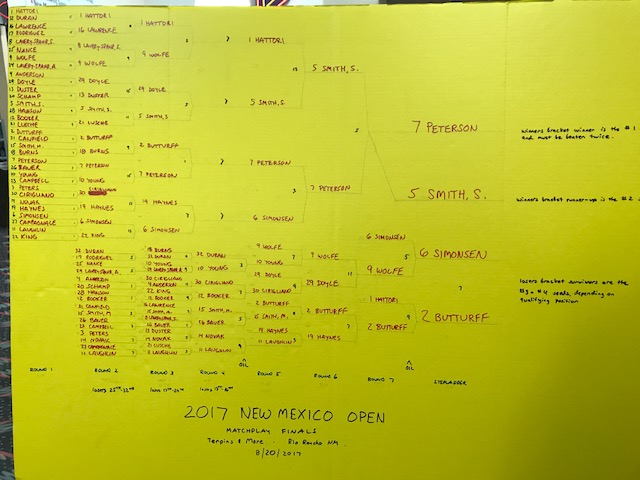 1 HATTORI
32 DURAN
16 LAWRENCE
17 RODRIGUEZ
25 NANCE
9 WOLFE
4 ANDERSON
29 DOYLE
13 DUSTER
20 SCHAMP
5 SMITH, S.
28 HANSON
12 BOOKER
21 LUSCHE
2 BUTTURFF
31 CANFIELD
15 SMITH, M.
18 BURNS
7 PETERSON
26 BAUER
10 YOUNG
23 CAMPBELL
3 PETERS
30 CIRIGLIANO
14 NOVAK
19 HAYNES
6 SIMONSEN
27 CAMPAGNALE
11 LAUGHLIN
22 KING
1 HATTORI
16 LAWRENCE
9 WOLFE
29 DOYLE
13 DUSTER
5 SMITH S.
21 LUSCHE
2 BUTTURFF
18 BURNS
7 PETERSON
10 YOUNG
30 CIRIGLIANO
19 HAYNES
6 SIMONSEN
22 KING
1 HATTORI
9 WOLFE
29 DOYLE
5 SMITH, S.
2 BUTTURFF
7 PETERSON
19 HAYNES
6 SIMONSEN
1 HATTORI
5 SMITH, S.
7 PETERSON
6 SIMONSEN
5 SMITH, S.
7 PETERSON
7 PETERSON
5 SMITH, S.
winners bracket winner is the #1
and must be beaten twice.
winners bracket runner-up is the #2
32 DURAN
17 RODRIGUEZ
25 NANCE
4 ANDERSON
20 SCHAMP
28 HANSON
12 BOOKER
31 CANFIELD
15 SMITH, M
26 BAUER
23 CAMPBELL
3 PETERS
14 NOVAK
27 CAMPAGNALE
11 LAUGHLIN
18 BURNS
32 DURAN
10 YOUNG
30 CIRIGLIANO
4 ANDERSON
22 KING
12 BOOKER
16 LAWRENCE
15 SMITH, M.
26 BAUER
13 DUSTER
14 NOVAK
21 LUSCHE
11 LAUGHLIN
32 DURAN
10 YOUNG
30 CIRIGLIANO
12 BOOKER
15 SMITH, M
26 BAUER
14 NOVAK
11 LAUGHLIN
9 WOLFE
10 YOUNG
29 DOYLE
30 CIRIGLIANO
2 BUTTURFF
15 SMITH, M.
19 HAYNES
11 LAUGHLIN
9 WOLFE
29 DOYLE
2 BUTTURFF
19 HAYNES
6 SIMONSEN
9 WOLFE
1 HATTORI
2 BUTTURFF
6 SIMONSEN
2 BUTTURFF
losers bracket survivors are the
#3 + #4 seeds, depending on
qualifying position
OIL
OIL
ROUND 1
ROUND 2
ROUND 3
ROUND 4
ROUND 5
ROUND 6
ROUND 7
STEPLADDER
losers 25TH-32ND
losers 17TH-24TH
2017 NEW MEXICO OPEN
MATCHPLAY FINALS
Tenpins & More . Rio Rancho NM.
8/20/2017